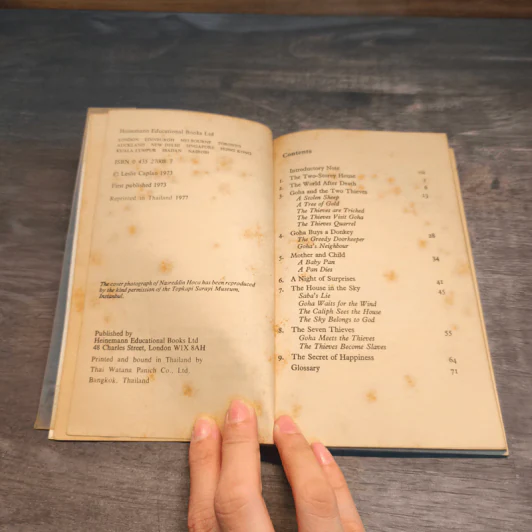 Heinemann Educational Books Ltd
LONDON EDINBURGH MELBOURNE TORONTO
AUCKLAND NEW DELHI SINGAPORE HONG KONG
KUALA LUMPUR IBADAN NAIROBI
ISBN 0 435
© Leslie Caplan 1973
First published 1973
Reprinted in Thailand 1977
The cover photograph of Nasreddin Hoca has been reproduced
by the kind permission of the Topkapi Sarayi Museum,
Istanbul.
Published by
Heinemann Educational Books Ltd
48 Charles Street, London W1X 8AH
Printed and bound in Thailand by
Thai Watana Panich Co., Ltd.
Bangkok, Thailand
Contents
Introductory Note
1. The Two-Storey House
2. The World After Death
3. Goha and the Two Thieves
A Stolen Sheep
A Tree of Gold
The Thieves are Tricked
The Thieves Visit Goha
The Thieves Quarrel
4. Goha Buys a Donkey 28
The Greedy Doorkeeper
Goha's Neighbour
5. Mother and Child 34
A Baby Pan
A Pan Dies
6. A Night of Surprises 41
7. The House in the Sky 45
Saba's Lie
Goha Waits for the Wind
The Caliph Sees the House
The Sky Belongs to God
8. The Seven Thieves 55
Goha Meets the Thieves
The Thieves Become Slaves
9. The Secret of Happiness 64
Glossary 71